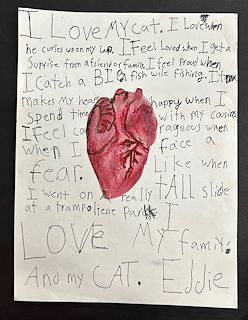 I Love My cat. I Love when
he curles up on my Lap. I Feel Loved when I get a
Suprise from a friend or family. I feel proud when
I catch a BIG fish wile fishing. It
makes my hear happy when I
spend time with my casins
I Feel cou rageous when
when I face a
fear. Like when
I went on a really tAll slide
at a trampoliene park I
LOVE My family.
And my CAT. Eddie